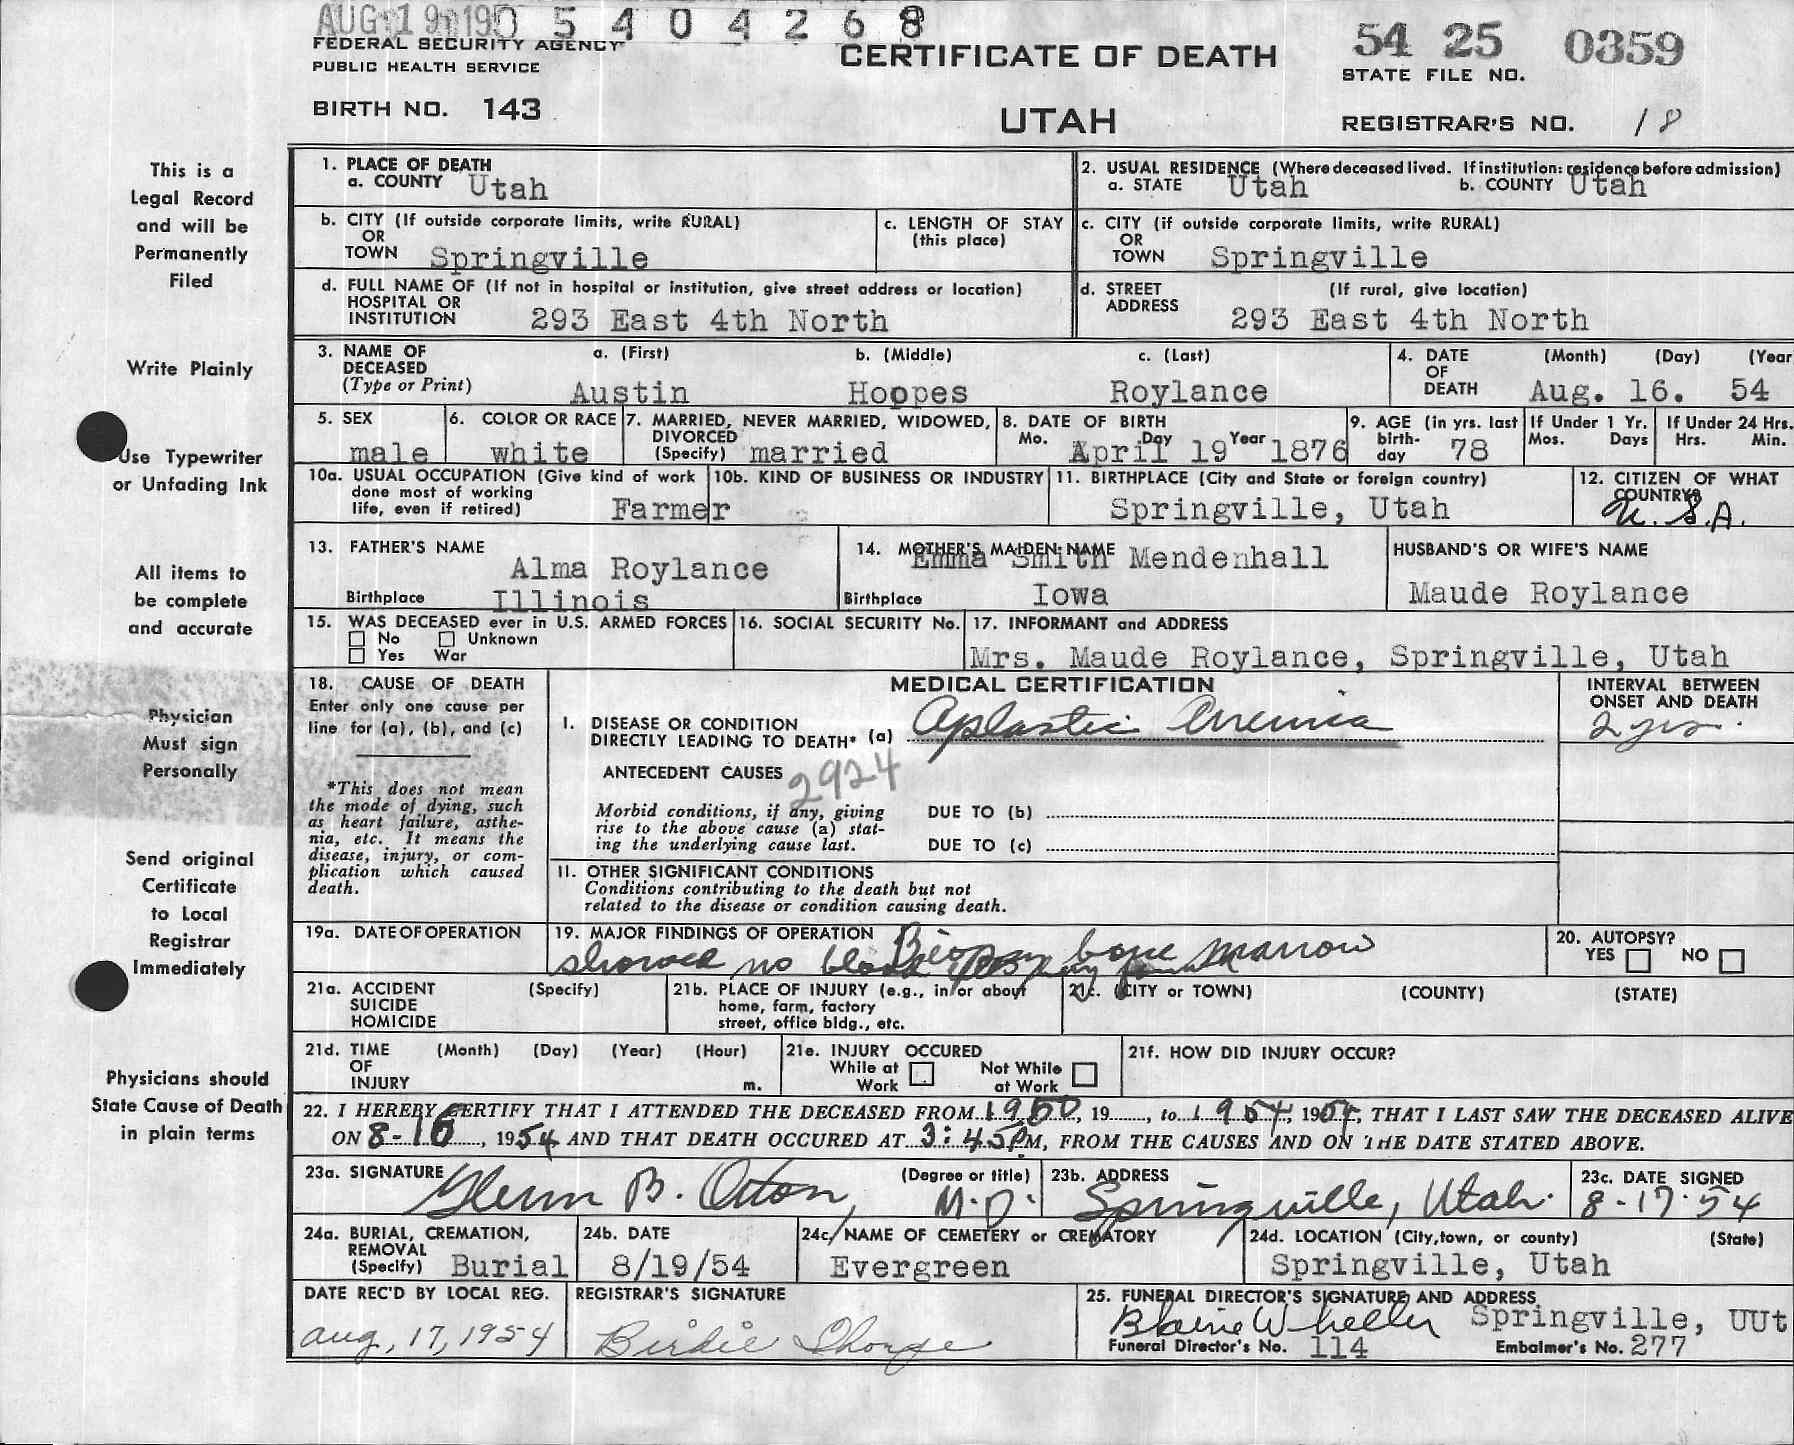 AUG 19 195
5 4 0 4 2 6 8
FEDERAL SECURITY AGENCY
PUBLIC HEALTH SERVICE
CERTIFICATE OF DEATH
54 25 0359
STATE FILE NO.
BIRTH NO. 143
UTAH
REGISTRAR'S NO. 18
This is a
Legal Record
and will be
Permanently
Filed
Write Plainly
Use Typewriter
or Unfading Ink
All items to
be complete
and accurate
Physician
Must sign
Personally
Send original
Certificate
to Local
Registrar
Immediately
Physicians should
State Cause of Death
in plain terms
1. PLACE OF DEATH
a. COUNTY Utah
2. USUAL RESIDENCE (Where deceased lived. If institution: residence before admission)
a. STATE Utah b. COUNTY Utah
b. CITY (If outside corporate limits, write RURAL)
OR
TOWN Springville
c. LENGTH OF STAY
(this place)
c. CITY (if outside corporate limits, write RURAL)
OR
TOWN Springville
d. FULL NAME OF (If not in hospital or institution, give street address or location)
HOSPITAL OR
INSTITUTION 293 East 4th North
d. STREET (If rural, give location)
ADDRESS
293 East 4th North
3. NAME OF a. (First) b. (Middle) c. (Last)
DECEASED
(Type or Print) Austin Hoppes Roylance
4. DATE (Month) (Day) (Year
OF
DEATH Aug. 16. 54
5. SEX
male
6. COLOR OR RACE
white
7. MARRIED, NEVER MARRIED, WIDOWED,
DIVORCED
(Specify) married
8. DATE OF BIRTH
Mo. Day Year
April 19 1876
9. AGE (in yrs. last
birth-
day 78
If Under 1 Yr.
Mos. Days
If Under 24 Hrs.
Hrs. Min.
10a. USUAL OCCUPATION (Give kind of work
done most of working
life, even if retired) Farmer
10b. KIND OF BUSINESS OR INDUSTRY
11. BIRTHPLACE (City and State or foreign country)
Springville, Utah
12. CITIZEN OF WHAT
COUNTRY?
U. S.A.
13. FATHER'S NAME
Alma Roylance
Birthplace Illinois
14. MOTHER'S MAIDEN NAME
Emma Smith Mendenhall
Birthplace Iowa
HUSBAND'S OR WIFE'S NAME
Maude Roylance
15. WAS DECEASED ever in U.S. ARMED FORCES
No Unknown
Yes War
16. SOCIAL SECURITY No.
17. INFORMANT and ADDRESS
Mrs. Maude Roylance, Springville, Utah
18. CAUSE OF DEATH
Enter only one cause per
line for (a), (b), and (c)
*This does not mean
the mode of dying, such
as heart failure, asthe-
nia, etc. It means the
disease, injury, or com-
plication which caused
death.
MEDICAL CERTIFICATION
I. DISEASE OR CONDITION
DIRECTLY LEADING TO DEATH* (a) Aplastic Anemia
ANTECEDENT CAUSES
2924
Morbid conditions, if any, giving
rise to the above cause (a) stat-
ing the underlying cause last.
DUE TO (b)
DUE TO (c)
II. OTHER SIGNIFICANT CONDITIONS
Conditions contributing to the death but not
related to the disease or condition causing death.
INTERVAL BETWEEN
ONSET AND DEATH
2 yrs.
19a. DATE OF OPERATION
19. MAJOR FINDINGS OF OPERATION Biopsy bone marrow
showed no blood
20. AUTOPSY?
YES NO
21a. ACCIDENT (Specify)
SUICIDE
HOMICIDE
21b. PLACE OF INJURY (e.g., in or about
home, farm, factory
street, office bldg., etc.
21c. (CITY or TOWN) (COUNTY) (STATE)
21d. TIME (Month) (Day) (Year) (Hour)
OF
INJURY m.
21e. INJURY OCCURED
While at Not While
Work at Work
21f. HOW DID INJURY OCCUR?
22. I HEREBY CERTIFY THAT I ATTENDED THE DECEASED FROM 1950, 19......, to 1954, 1954, THAT I LAST SAW THE DECEASED ALIVE
ON 8-16, 1954 AND THAT DEATH OCCURED AT 3:45PM, FROM THE CAUSES AND ON THE DATE STATED ABOVE.
23a. SIGNATURE (Degree or title)
Glenn B. Orton, M.D.
23b. ADDRESS
Springville, Utah.
23c. DATE SIGNED
8-17-54
24a. BURIAL, CREMATION,
REMOVAL
(Specify) Burial
24b. DATE
8/19/54
24c. NAME OF CEMETERY or CREMATORY
Evergreen
24d. LOCATION (City, town, or county) (State)
Springville, Utah
DATE REC'D BY LOCAL REG.
Aug, 17, 1954
REGISTRAR'S SIGNATURE
Birdie Thorpe
25. FUNERAL DIRECTOR'S SIGNATURE AND ADDRESS
Blaine Wheeler Springville, UUt
Funeral Director's No. 114 Embalmer's No. 277